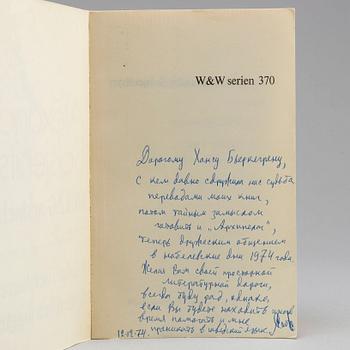 W&W serien 370
Дорогому Хансу Бьеркегрену,
с кем давно сдружила нас судьба
переводами моих книг,
потом тайным замыслом
готовить и „Архипелаг",
теперь дружеским общением
в нобелевские дни 1974 года.
Желаю Вам своей просторной
литературной дороги,
всегда буду рад, однако,
если Вы будете находить иногда
время помогать и мне
проникать в шведский язык.
12.12.74.